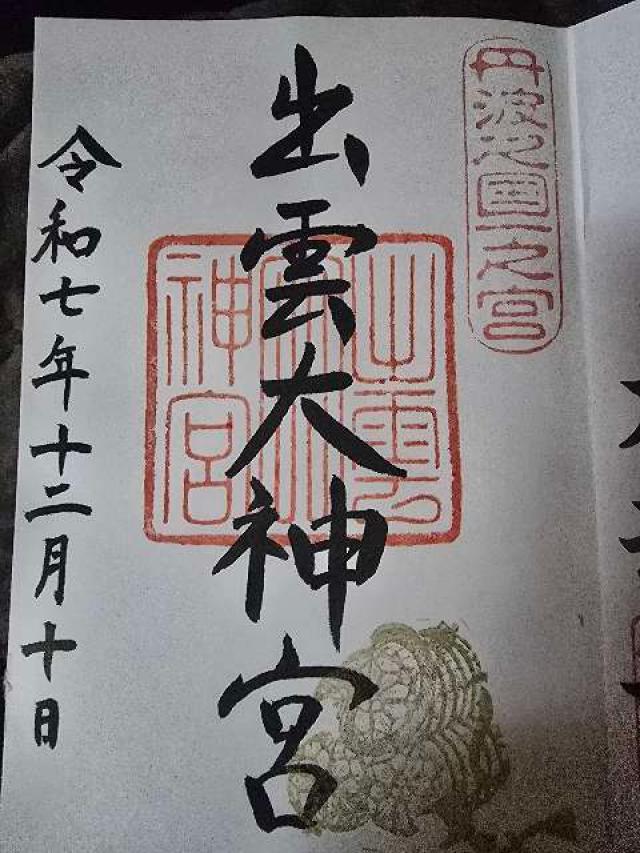 丹波之國一之宮
出雲大神宮
出雲大神宮
令和七年十二月十日